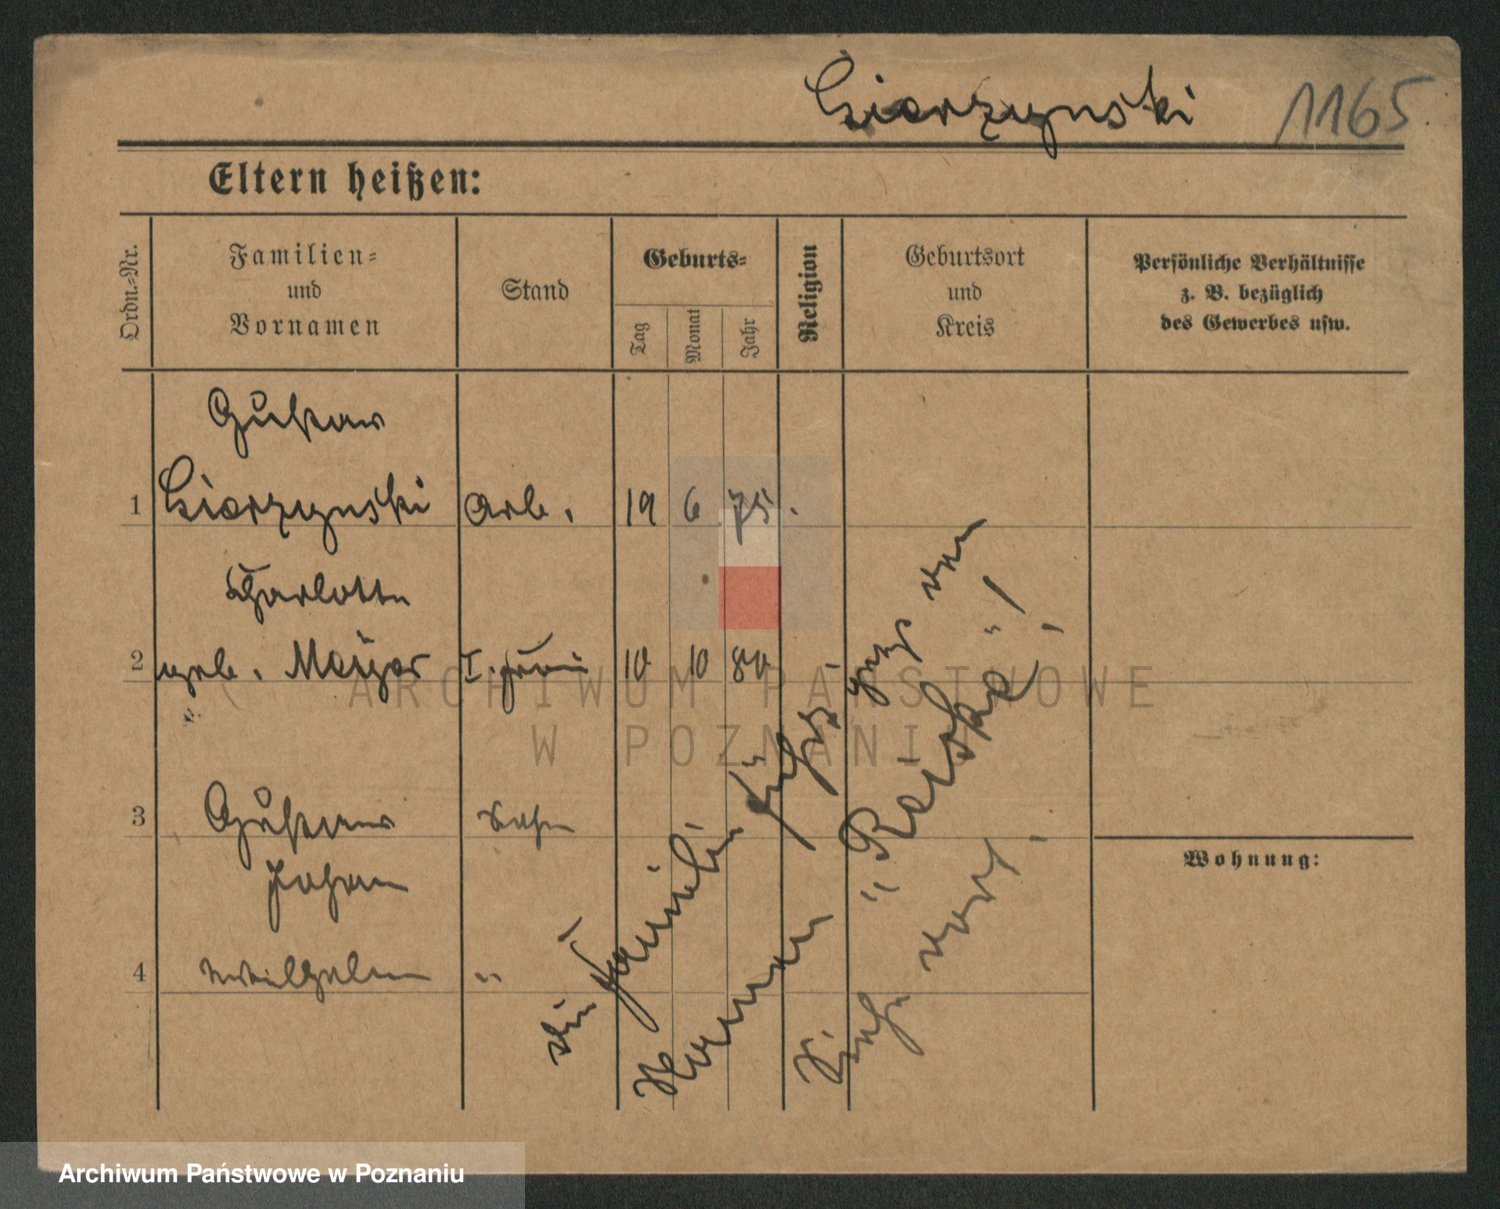 Lierzynski 1165
Eltern heißen:
Ordn.-Nr.
Familien-
und
Vornamen
Stand
Geburts-
Tag
Monat
Jahr
Religion
Geburtsort
und
Kreis
Persönliche Verhältnisse
z. B. bezüglich
des Gewerbes usw.
Gustav
1 Lierzynski Arb. 19 6 75.
Charlotte
2 geb. 10 10 80
3 Gustav Sohn
Johann
4 Wilhelm "
Die Familie führt jetzt den
Namen "Reiske"!
Siehe dort!
Wohnung:
ARCHIWUM PAŃSTWOWE
W POZNANIU
Archiwum Państwowe w Poznaniu